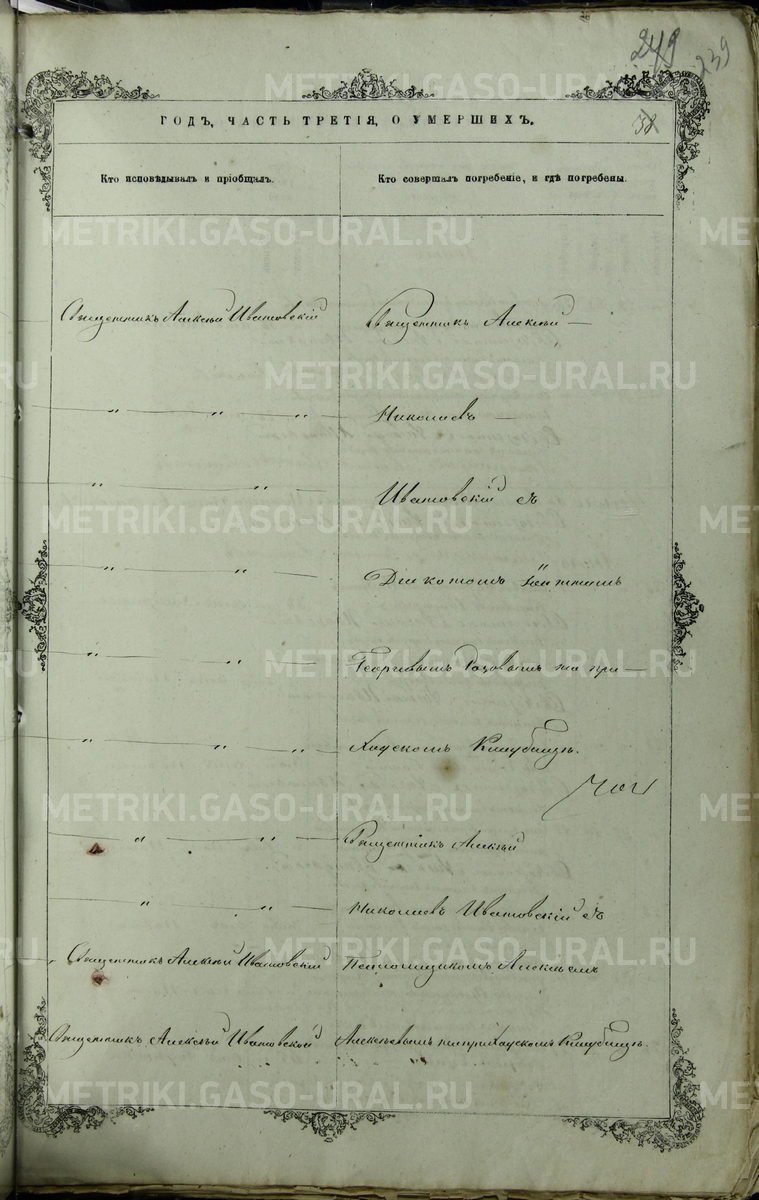 249
239
ГОДЪ, ЧАСТЬ ТРЕТІЯ, О УМЕРШИХЪ.
38
Кто исповѣдывалъ и пріобщалъ.
Кто совершалъ погребеніе, и гдѣ погребены.
Священникъ Алексѣй Ивановскій
Священникъ Алексѣй —
— " — " — " —
Николаевъ —
" — " —
Ивановскій съ
— " — " —
Діакономъ
— " — " —
Георгіевымъ Розовымъ на при —
— " — " — " —
ходскомъ Кладбищѣ.
— " — " —
Священникъ Алексѣй
— " — " —
Николаевъ Ивановскій съ
Священникъ Алексѣй Ивановскій
Псаломщикомъ Алексѣемъ
Священникъ Алексѣй Ивановской
Алексѣевымъ на приходскомъ Кладбищѣ.
METRIKI.GASO-URAL.RU